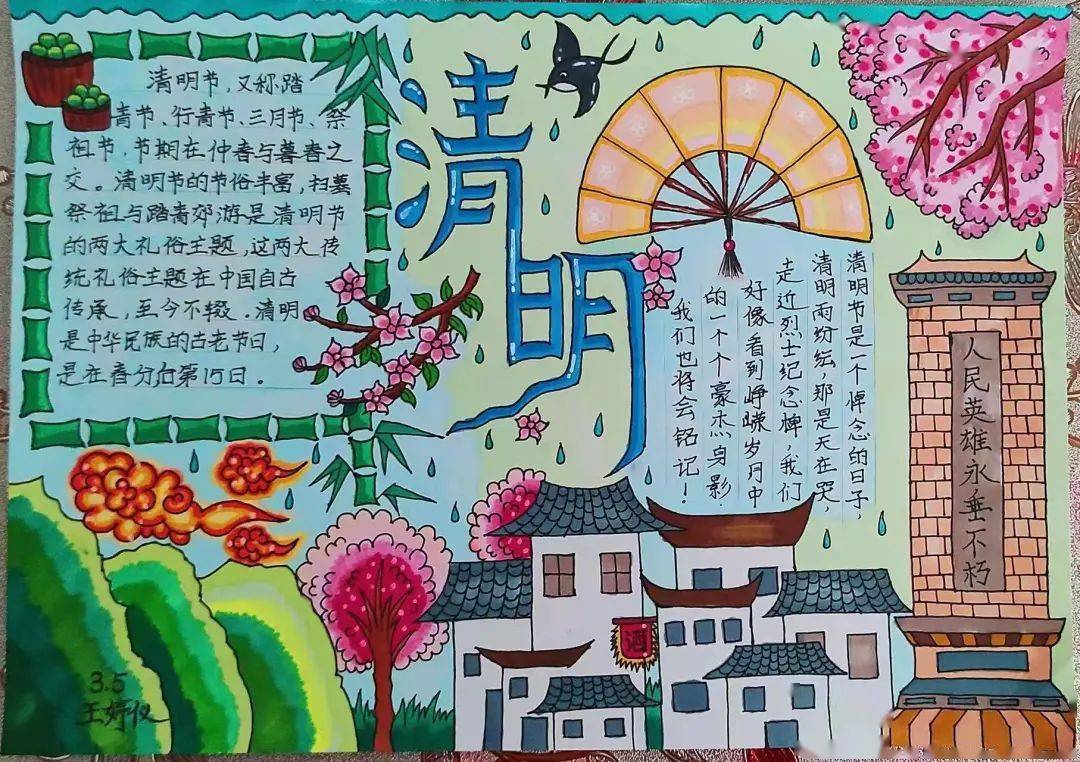 清明节,又称踏
青节、行青节、三月节、祭
祖节,节期在仲春与暮春之
交。清明节的节俗丰富,扫墓
祭祖与踏青郊游是清明节
的两大礼俗主题,这两大传
统礼俗主题在中国自古
传承,至今不辍.清明
是中华民族的古老节日,
是在春分后第15日。
清明
清明节是一个悼念的日子,
清明雨纷纭,那是天在哭,
走近烈士纪念碑,我们
好像看到峥嵘岁月中
的一个个豪杰身影.
我们也将会铭记!
人民英雄永垂不朽
酒
3.5